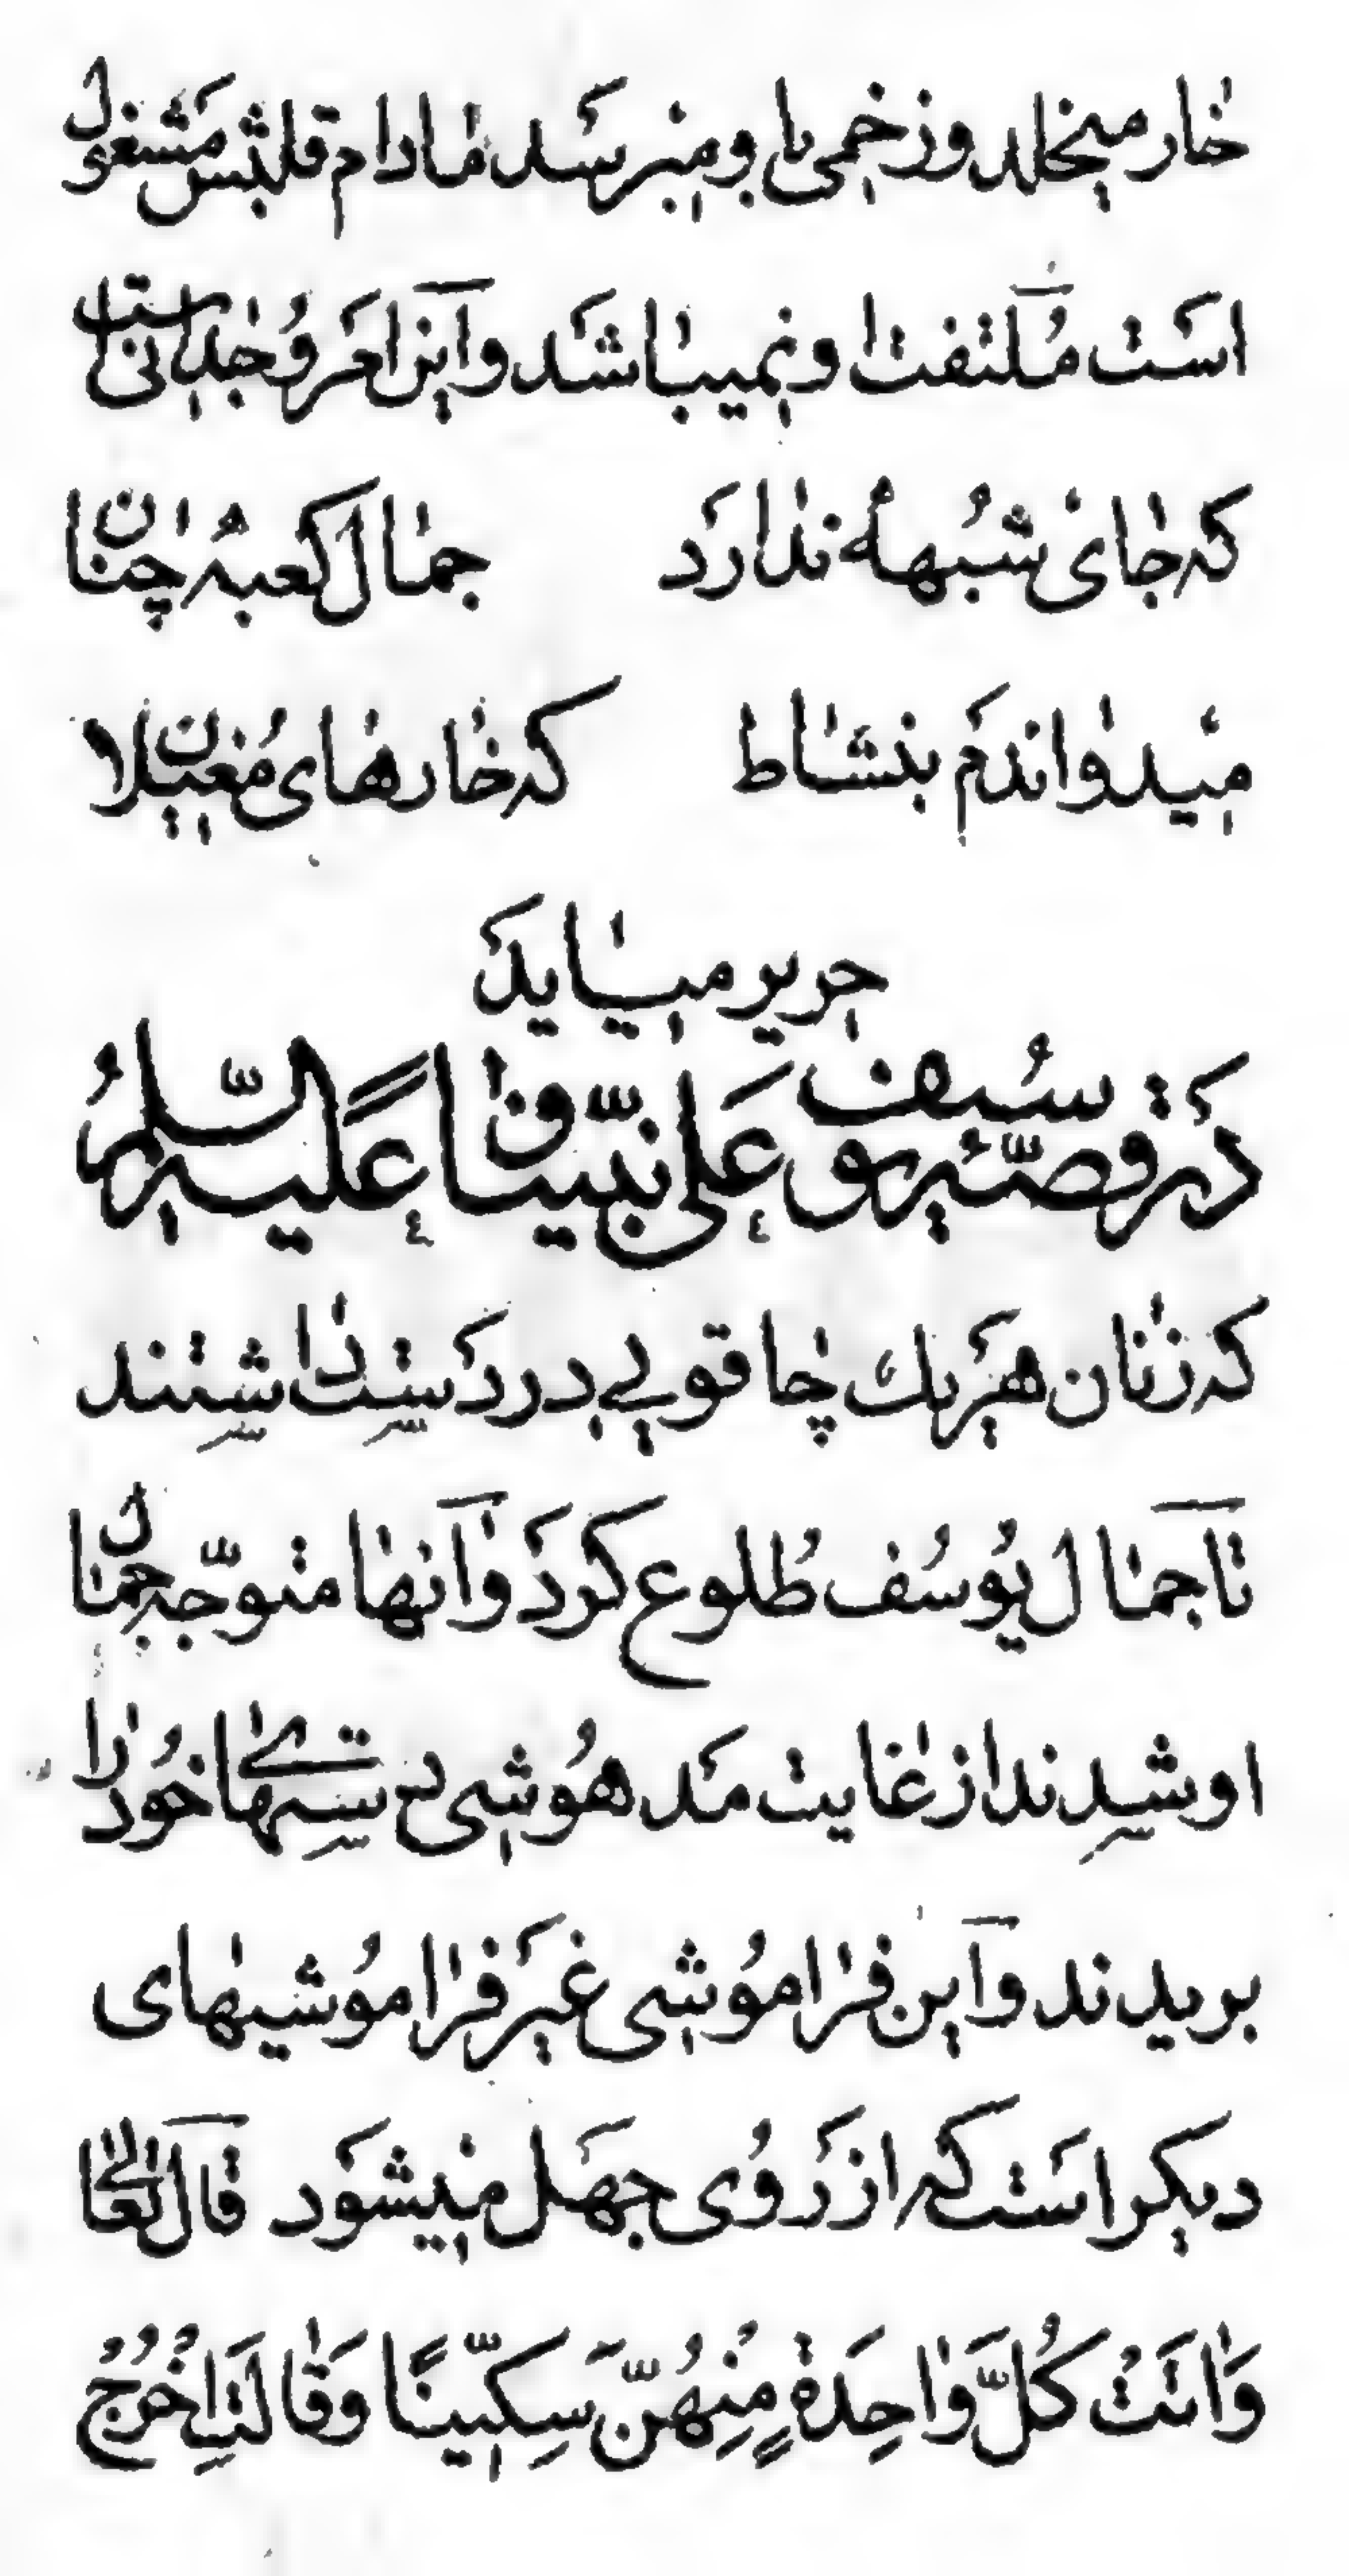 خار میخلد و زخمی باو میرسد مادام قلبش مشغول
است ملتفت او نمیباشد و این امر وجدانی است
که جای شبههٔ ندارد جمال کعبه چنان
میدواندم بنشاط که خارهای مغیلان
حریر میاید
در قصّهٔ یوسف علی نبیّنا و علیه السّلم
که زنان هر یك چاقویی در دست داشتند
تا جمال یوسف طلوع کرد و آنها متوجّه جمال
او شدند از غایت مدهوشی دستهای خود را
بریدند و این فراموشی غیر فراموشیهای
دیکر است که از روی جهل میشود قال تعالی
وَاٰتَتْ كُلَّ وَاحِدَةٍ مِنْهُنَّ سِكِّينًا وَقَالَتِ اخْرُجْ